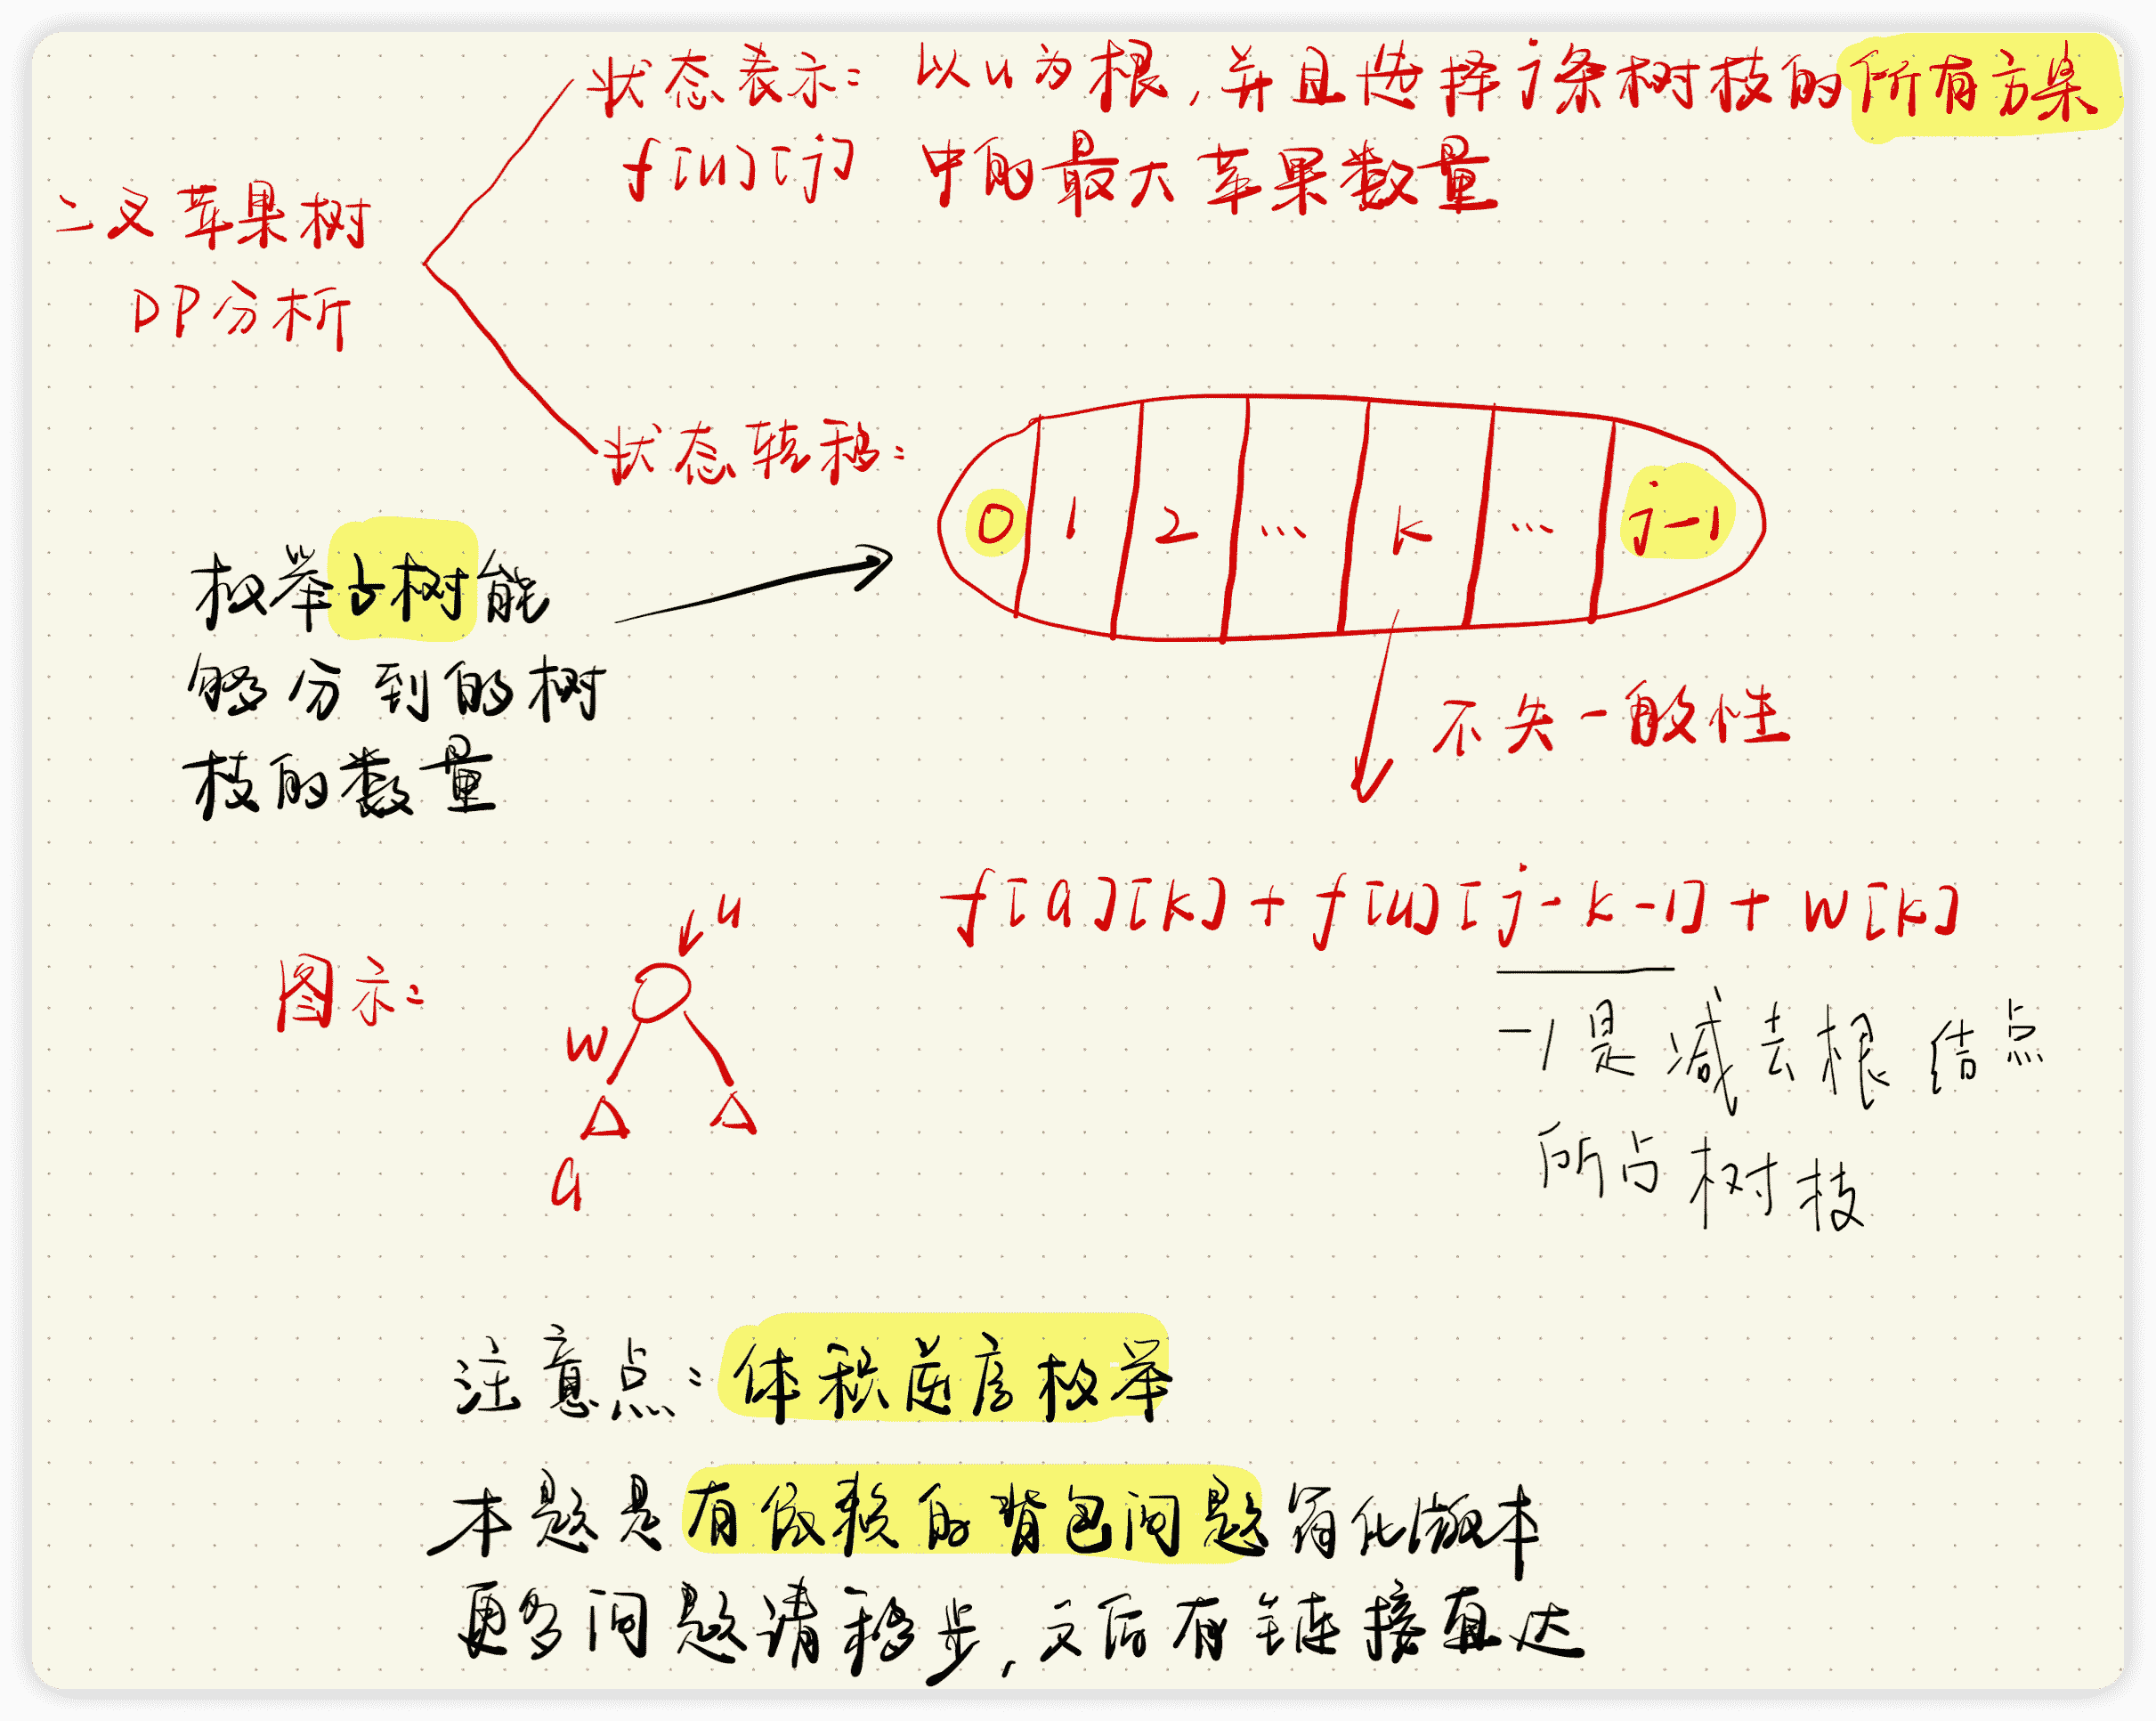 二叉苹果树
DP分析
状态表示: 以u为根,并且选择j条树枝的所有方案
f[u][j] 中的最大苹果数量
状态转移:
0 1 2 ... k ... j-1
枚举子树能
够分到的树
枝的数量
不失一般性
f[a][k] + f[u][j-k-1] + w[k]
-1是减去根结点
所占树枝
图示:
u
w
a
注意点: 体积逆序枚举
本题是有依赖的背包问题简化版本
更多问题请移步,文后有链接直达